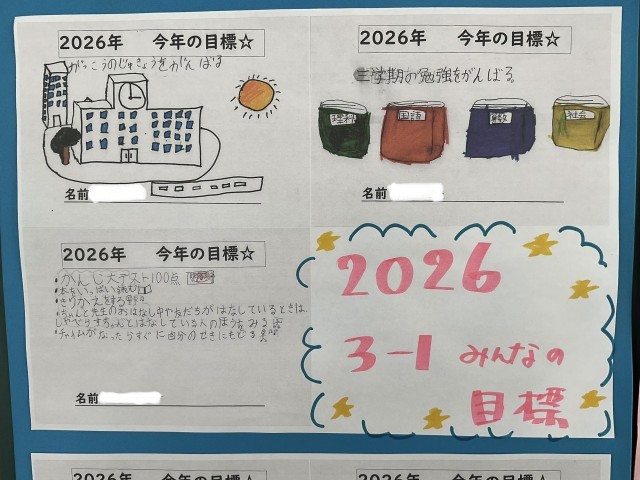 2026年 今年の目標☆
がっこうのじゅぎょうをがんばる
名前
2026年 今年の目標☆
三学期の勉強をがんばる。
理科
国語
算数
社会
名前
2026年 今年の目標☆
・がんじ大テスト100点
・本をいっぱい読む
・きりかえをする
・ちゃんと先生のおはなし中や友だちがはなしているときは
しゃべりすちゃんとはなしている人のほうをみる
・チャイムがなったらすぐに自分のせきにもどる
名前
2026
3-1 みんなの
目標
2026年 今年の目標☆
2026年 今年の目標☆